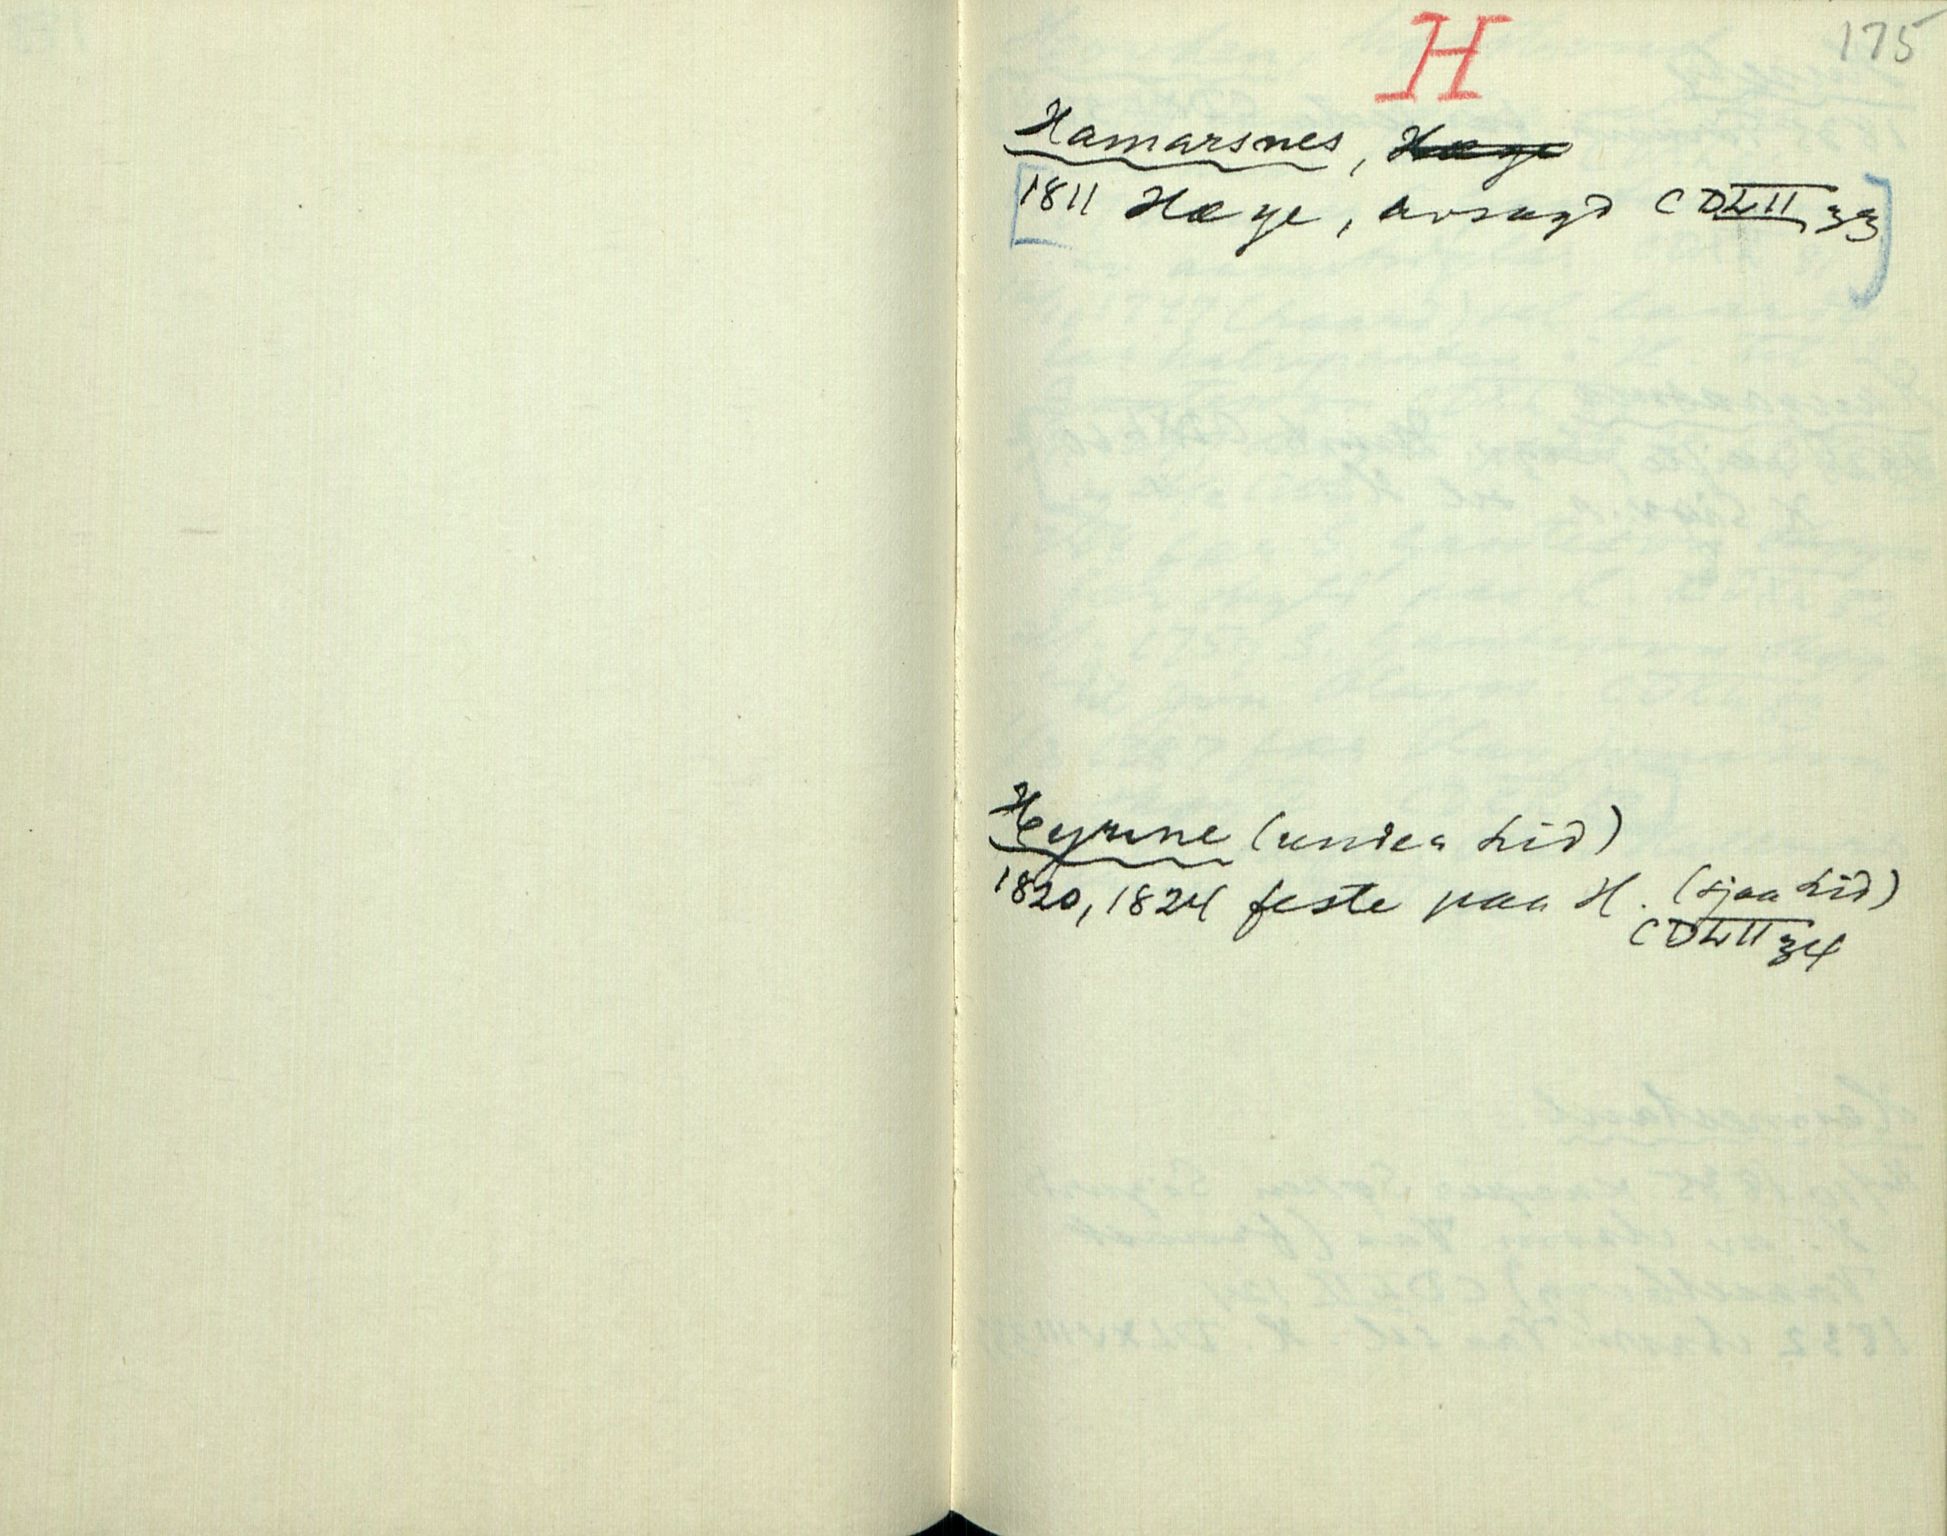 H
175
Hamarsnes, Hæge
1811 Hæge, avsagd CDLII 33
Heyrune (under Lid)
1820, 1824 feste paa H. (sjaa Lid)
CDLII 34